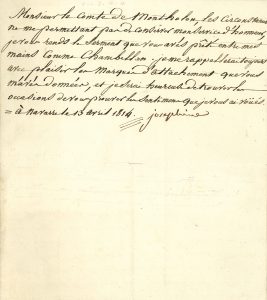 Monsieur le Comte de Montholon, les Circonstances
ne me permettant pas de Conserver mon Service d'honneur
je vous rends le Serment que vous avés prêté entre mes
mains Comme Chambellan. je me rappellerai toujours
avec plaisir les Marques d'attachement que vous
m'avés données, et je serai heureuse de trouver les
occasions de vous prouver les Sentimens que je vous ai voués.
= à Navarre le 13 avril 1814. Joséphine